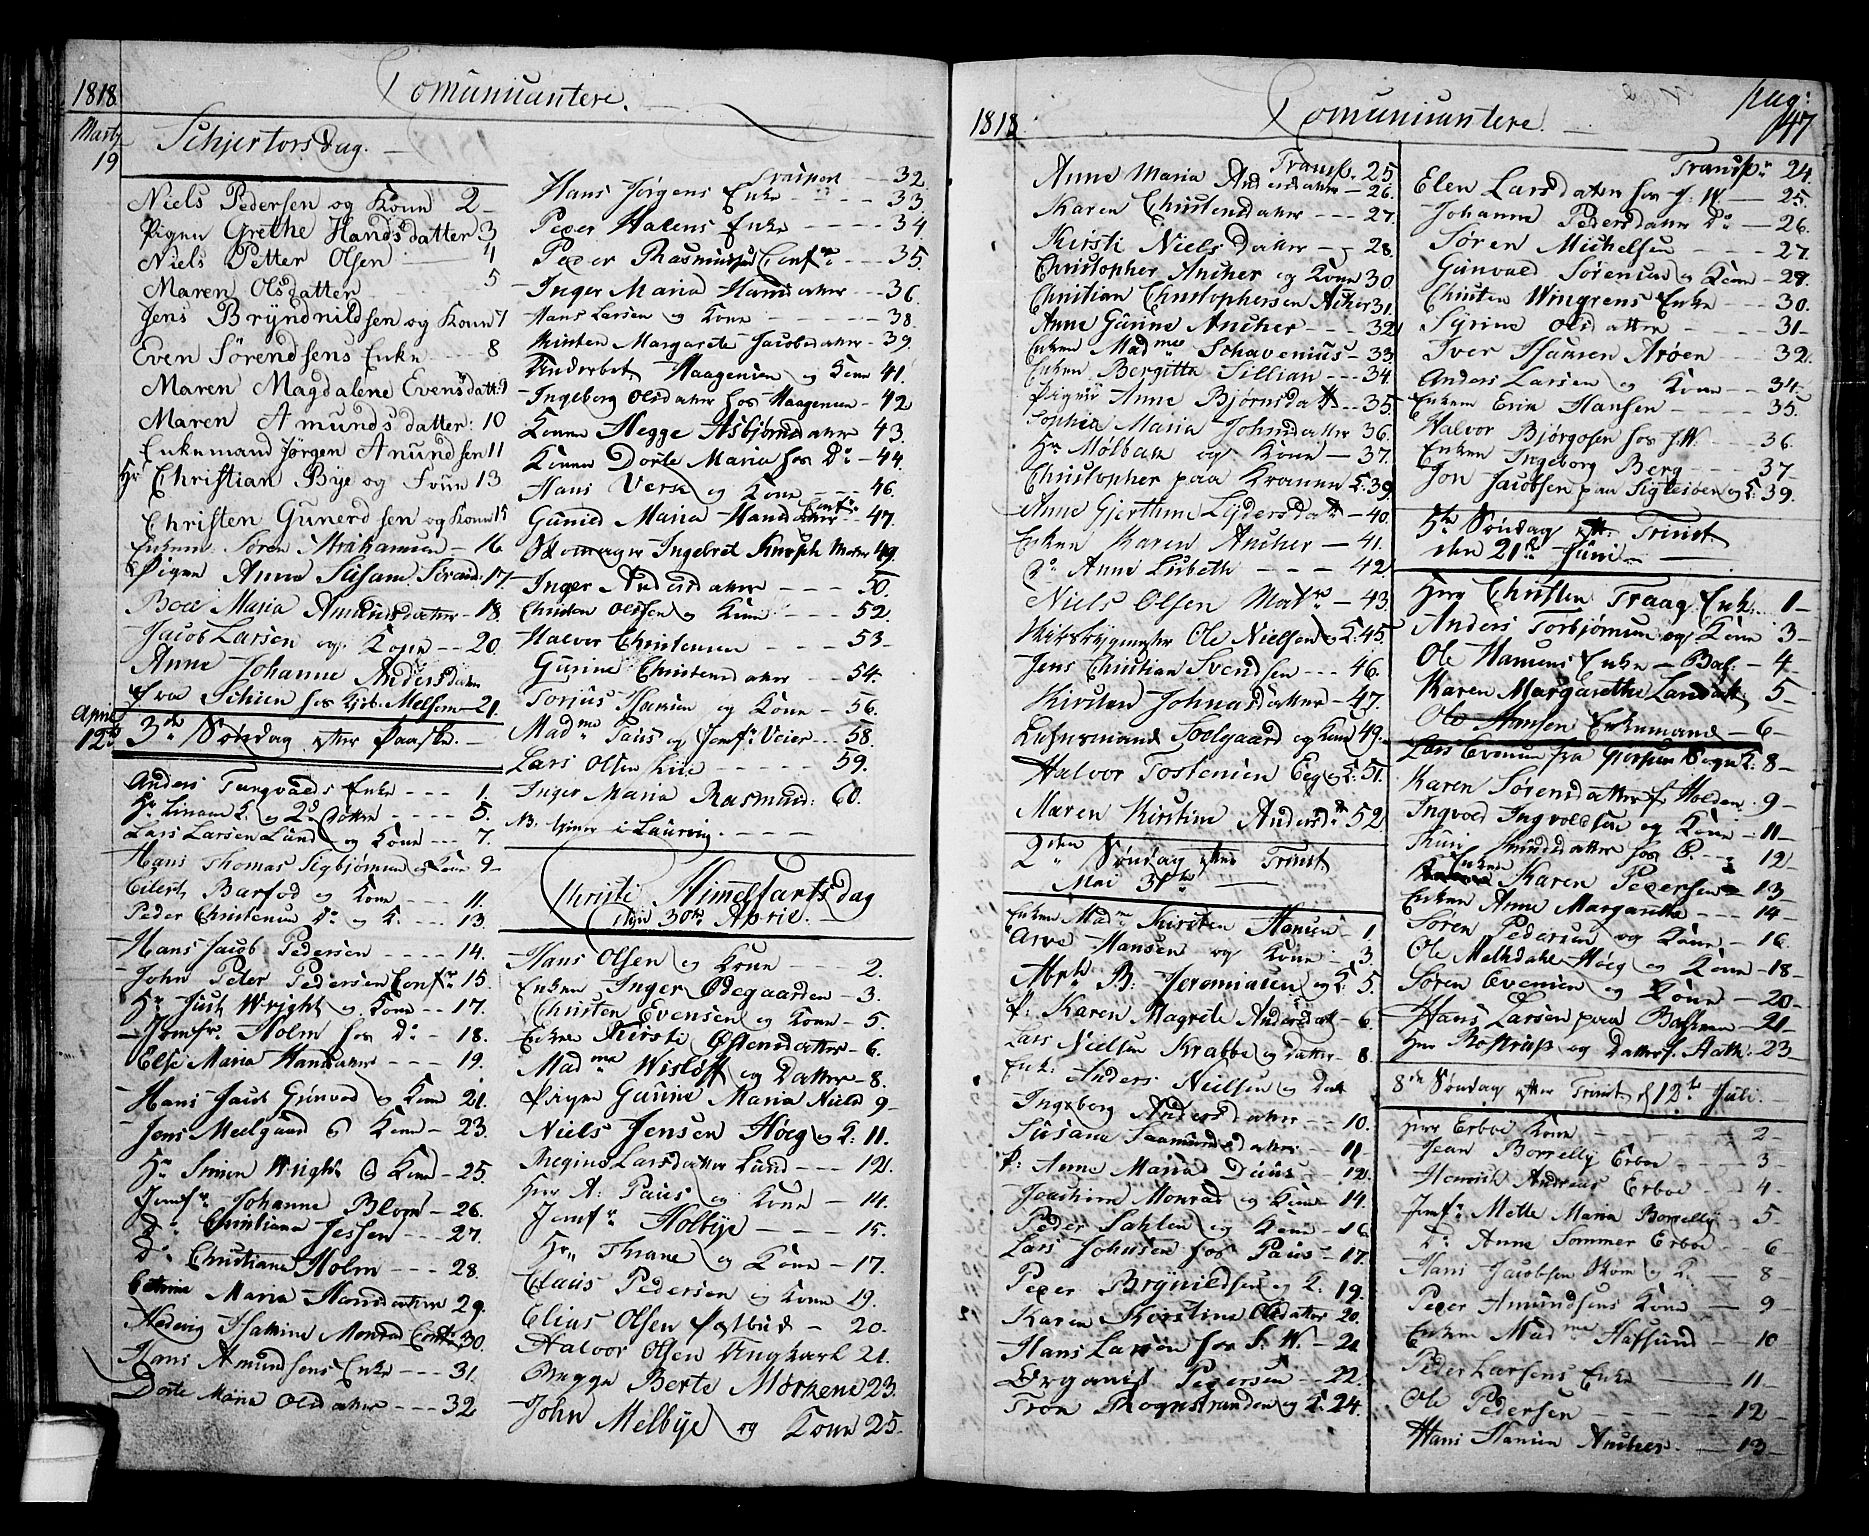 1818
Comunicantere.
Marty 19
Schjertorsdag.
Niels Pedersen og Kone 2
Pigen Grethe Handsdatter 3
Niels Petter Olsen 4
Maren Olsdatter 5
Jens Bryndnildsen og Kone 7
Even Sørendsens Enke 8
Maren Magdalene Evensdatt: 9
Maren Amundsdatter: 10
Enkemand Jørgen Anundsen 11
Hr Christian Bye og Frue 13
Christen Gunerdsen og Kone 15
Enkem: Søren 16
Pigen Anne Susane 17
Boel Maria Amundsdatter 18.
Jacob Larsen og Kone 20
Anne Johanne Andersdatter
fra Schien hos Melsom 21.
April 12te
3de Søndag efter Paaske.
Anders Turgvalds Enke 1.
Hr Linaae K. og 2de Døttre 5.
Lars Larsen Lund og Kone 7.
Hans Thomas Sigbjørnsen og Kone 9
Eilert Barfod og Kone 11.
Peder Christensen Do og K. 13.
Hans Jacob Pedersen 14.
John Peter Pedersen Confr 15.
Hr Just Wright og Kone 17.
Jomfr Holm hos Do 18.
Else Maria Hansdatter 19.
Hans Jacob Gunvald og Kone 21.
Jens Meelgaard og Kone 23.
Hr Simon Wright og Kone 25.
Jomfr Johanne Blom 26.
Do Christiane Jessen 27.
Do Christiane Holm 28.
Cathrine Maria Hansdatter 29.
Hedevig Jssabine Monrad Conf: 30.
Hans Amundsens Enke 31.
Dorte Maria Olsdatter 32
Trasport 32.
Hans Jørgens Enke 33.
Peder Halens Enke 34.
Peder Rasmussen Confr 35.
Inger Maria Hansdatter 36.
Hans Larsen og Kone 38.
Kirsten Margarete Jacobsdatter 39.
Underbet Haagensen og Kone 41.
Ingeborg Olsdatter hos Haagensen 42
Konen Hegge Asbjørnsdatter 43.
Konen Dorte Maria hos Do 44.
Hans Versk og Kone 46.
Gunild Maria Hansdatter Conf 47.
Skomager Ingebret Knoph 49.
Inger Andersdatter 50.
Christen Olssen og Kone 52.
Halvor Christensen 53
Gurine Christensdatter 54.
Torjus Hansen og Kone 56.
Madme Paus og Jomfr Veier 58.
Lars Olsen Lie 59.
Inger Maria Rasmusd: 60.
NB. hiemme i Laurvig
Christi Himmelfartsdag
den 30te April.
Hans Olsen og Kone 2.
Enken Inger Ødegaarden 3.
Christen Evensen og Kone 5.
Enken Kirsti Østensdatter 6.
Madme Wisløff og Datter 8.
Pigen Gunine Maria Nields 9
Niels Jensen Høeg og K: 11.
Megine Larsdatter Lund 12.
Herr A: Paus og Kone 14.
Jomfr Holbye 15.
Hr Thrane og Kone 17.
Claus Pedersen og Kone 19.
Elias Olsen Postbud 20.
Halvor Olsen Ungkarl 21.
Begge Berte Mørkene 23.
John Melbye og Kone 25.
1818
Comunicantere.
pag: 47
Transp. 25
Anne Maria Andersdatter 26.
Karen Christensdatter 27.
Kirsti Nielsdatter 28.
Christopher Ancher og Kone 30
Christian Christophersen Acher 31.
Anne Gurine Ancher 32
Enken Madme Schavenius 33
Enken Bergitta Sillian 34.
Pigen Anne Bjørnsdatt 35.
Sophia Maria Johnsdatter 36.
Hr Mølbach og Kone 37.
Christopher paa Kronen K: 39.
Anne Gjerthine Lydersdatt 40.
Enken Karen Ancher 41.
Do Anne Lisbeth 42
Niels Olsen Matr 43.
Skibsbygmester Ole Nielsen og K: 45.
Jens Christian Svendsen 46.
Kirsten Johnasdatter 47.
Lehnsmand Soolgaard og Kone 49.
Halvor Tostensen Eeg og K: 51.
Maren Kirstine Andersd: 52
2den Søndag efter Trinit
Mai 31te
Enken Madme Kirsten Hansen 1
Arve Hansen og Kone 3.
Abrh B: Jeromiasen og K: 5.
P: Karen Magrete Andersdatt 6.
Lars Nielsen Krabbe og Datter 8.
Enk: Anders Nielsen og Datt
Ingeborg Andersdatter 10.
Susane Saamundsdatter 11
P: Anne Maria Duus 12.
Joachim Monrad og Kone 14.
Peder Sahlen og Kone 16
Lars Johnsen hos Paus 17.
Peder Brynildsen og K: 19.
Karen Kirstine Olsdatter 20.
Hans Larsen hos S. W. 21
Organist Pedersen 22.
Tron Rognstranden og K. 24.
Transp. 24.
Elen Larsdatter hos J. W. 25.
Johanne Pedersdatter Do 26.
Søren Michelsen 27.
Gunvald Sørensen og Kone 29.
Christen Wingrens Enke 30.
Sirine Olsdatter 31
Iver Hansen Arøen 32.
Anders Larsen og Kone 34.
Enkem Erik Hansen 35.
Halvor Bjørgosen hos J. W. 36.
Enken Ingeborg Berg 37
Jon Jacobsen paa Sigtesøen og K: 39.
5te Søndag efter Trinit
den 21de Juni.
Herr Christen Traag Enk: 1
Anders Torbjørnsen og Kone 3
Ole Hansens Enke Bas: 4
Karen Margarethe Larsdatt 5
Ole Hansen Enkemand 6
Lars Evensen fra Gjerpen Sogn K: 8
Karen Sørensdatter f. Holden 9
Ingvald Ingvoldsen og Kone 11
Knudsdatter hos P. 12
Enken Karen Pedersen 13
Enken Anne Margarethe 14
Søren Pedersen og Kone 16.
Ole Melkdahl Høeg og Kone 18
Søren Evensen og Kone 20
Hans Larsen paa Bakken 21
Herr Rostrup og Datter f. Aath: 23
8de Søndag efter Trinit d 12te Juli.
Herr Erboe Kone 2
Jean Borrelly Erboe 3
Henrich Andreas Erboe 4
Jomfr Mette Maria Borrelly 5
Do Anne Sommer Erboe 6
Hans Jacobsen Skom og K. 8
Peder Amundsens Kone 9
Enken Madme Hafsund 10
Peder Larsens Enke 11
Ole Pedersen 12
Hans Hansen Ancher 13